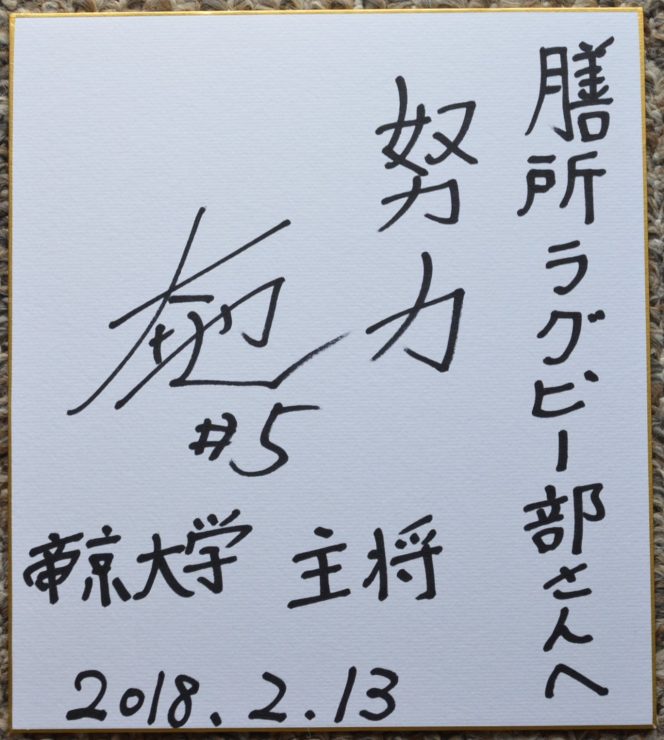 膳所ラグビー部さんへ
努力
#5
帝京大学 主将
2018.2.13